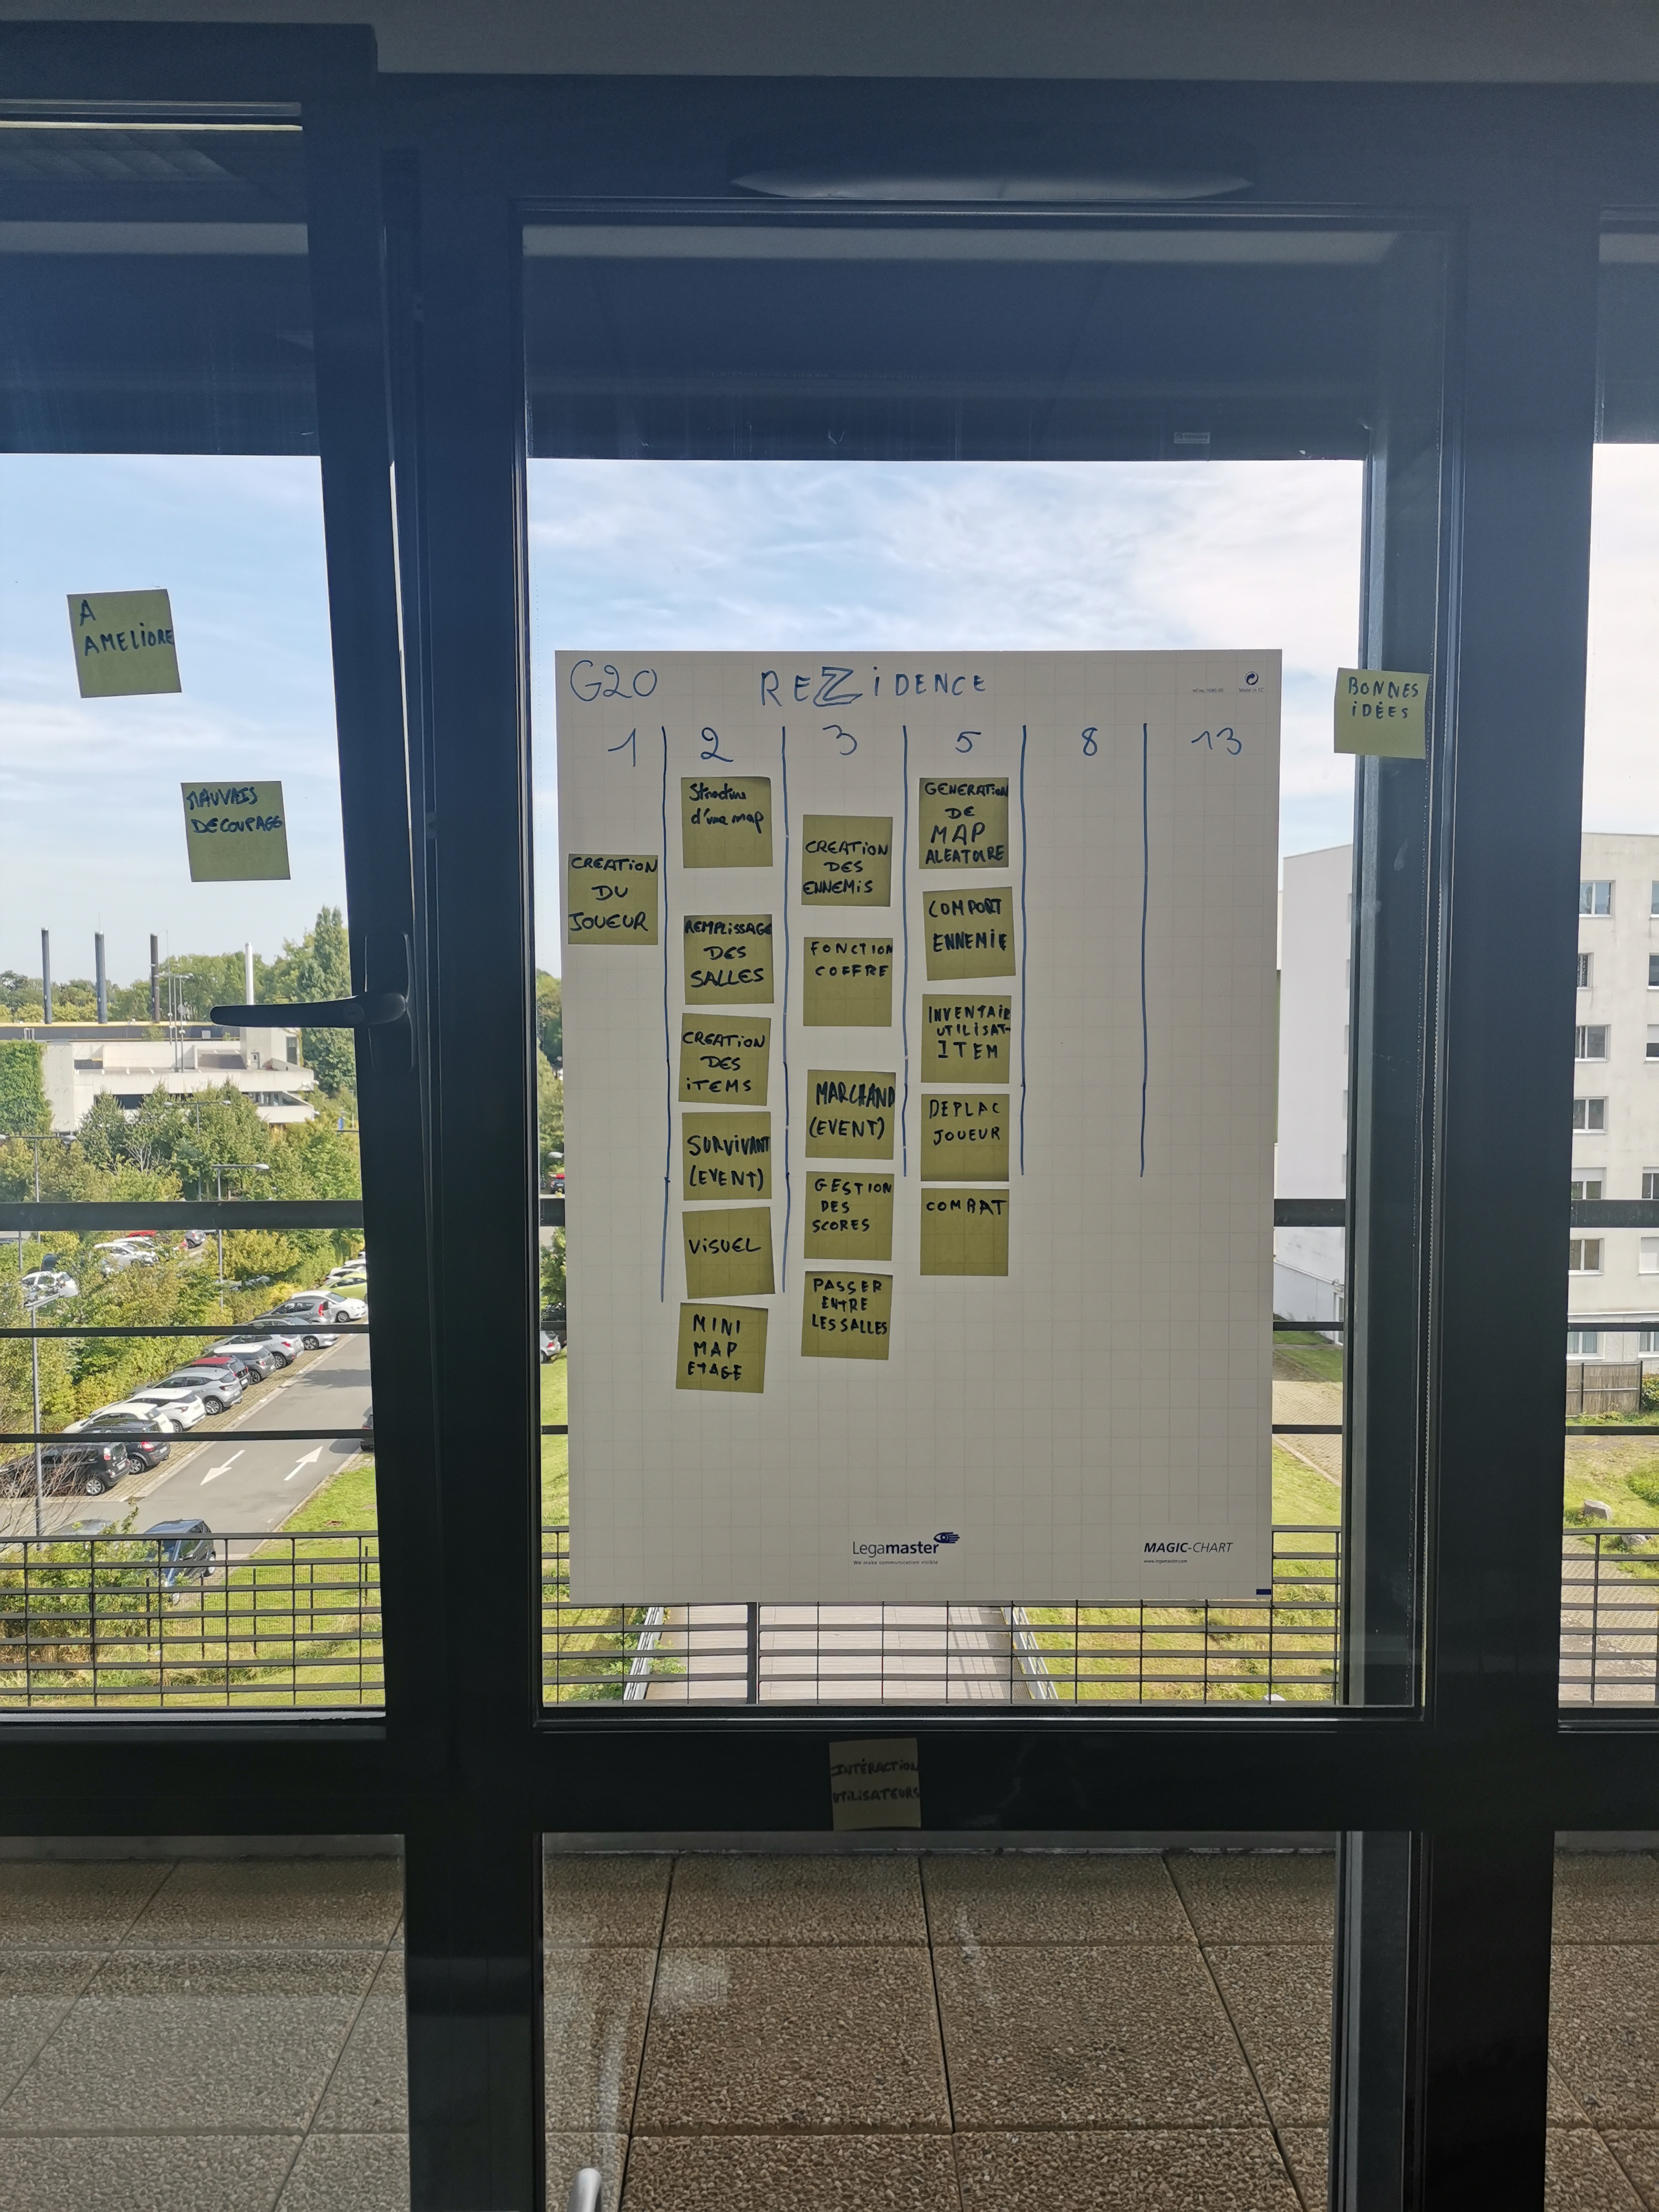 A
AMELIORE
MAUVAIS
DECOUPAGE
G20 REZiDENCE
1 2 3 5 8 13
CREATION
DU
JOUEUR
Structure
d'une map
REMPLISSAGE
DES
SALLES
CREATION
DES
iTEMS
SURVIVANT
(EVENT)
ViSUEL
MINI
MAP
ETAGE
CREATION
DES
ENNEMIS
FONCTION
COFFRE
MARCHAND
(EVENT)
GESTION
DES
SCORES
PASSER
ENTRE
LES SALLES
GENERATION
DE
MAP
ALEATOIRE
COMPORT
ENNEMIE
INVENTAIR
UTILISAT-
ITEM
DEPLAC
JOUEUR
COMBAT
BONNES
iDÉES
Legamaster
We make communication visible
MAGIC-CHART
www.legamaster.com
INTÉRACTION
UTILISATEURS